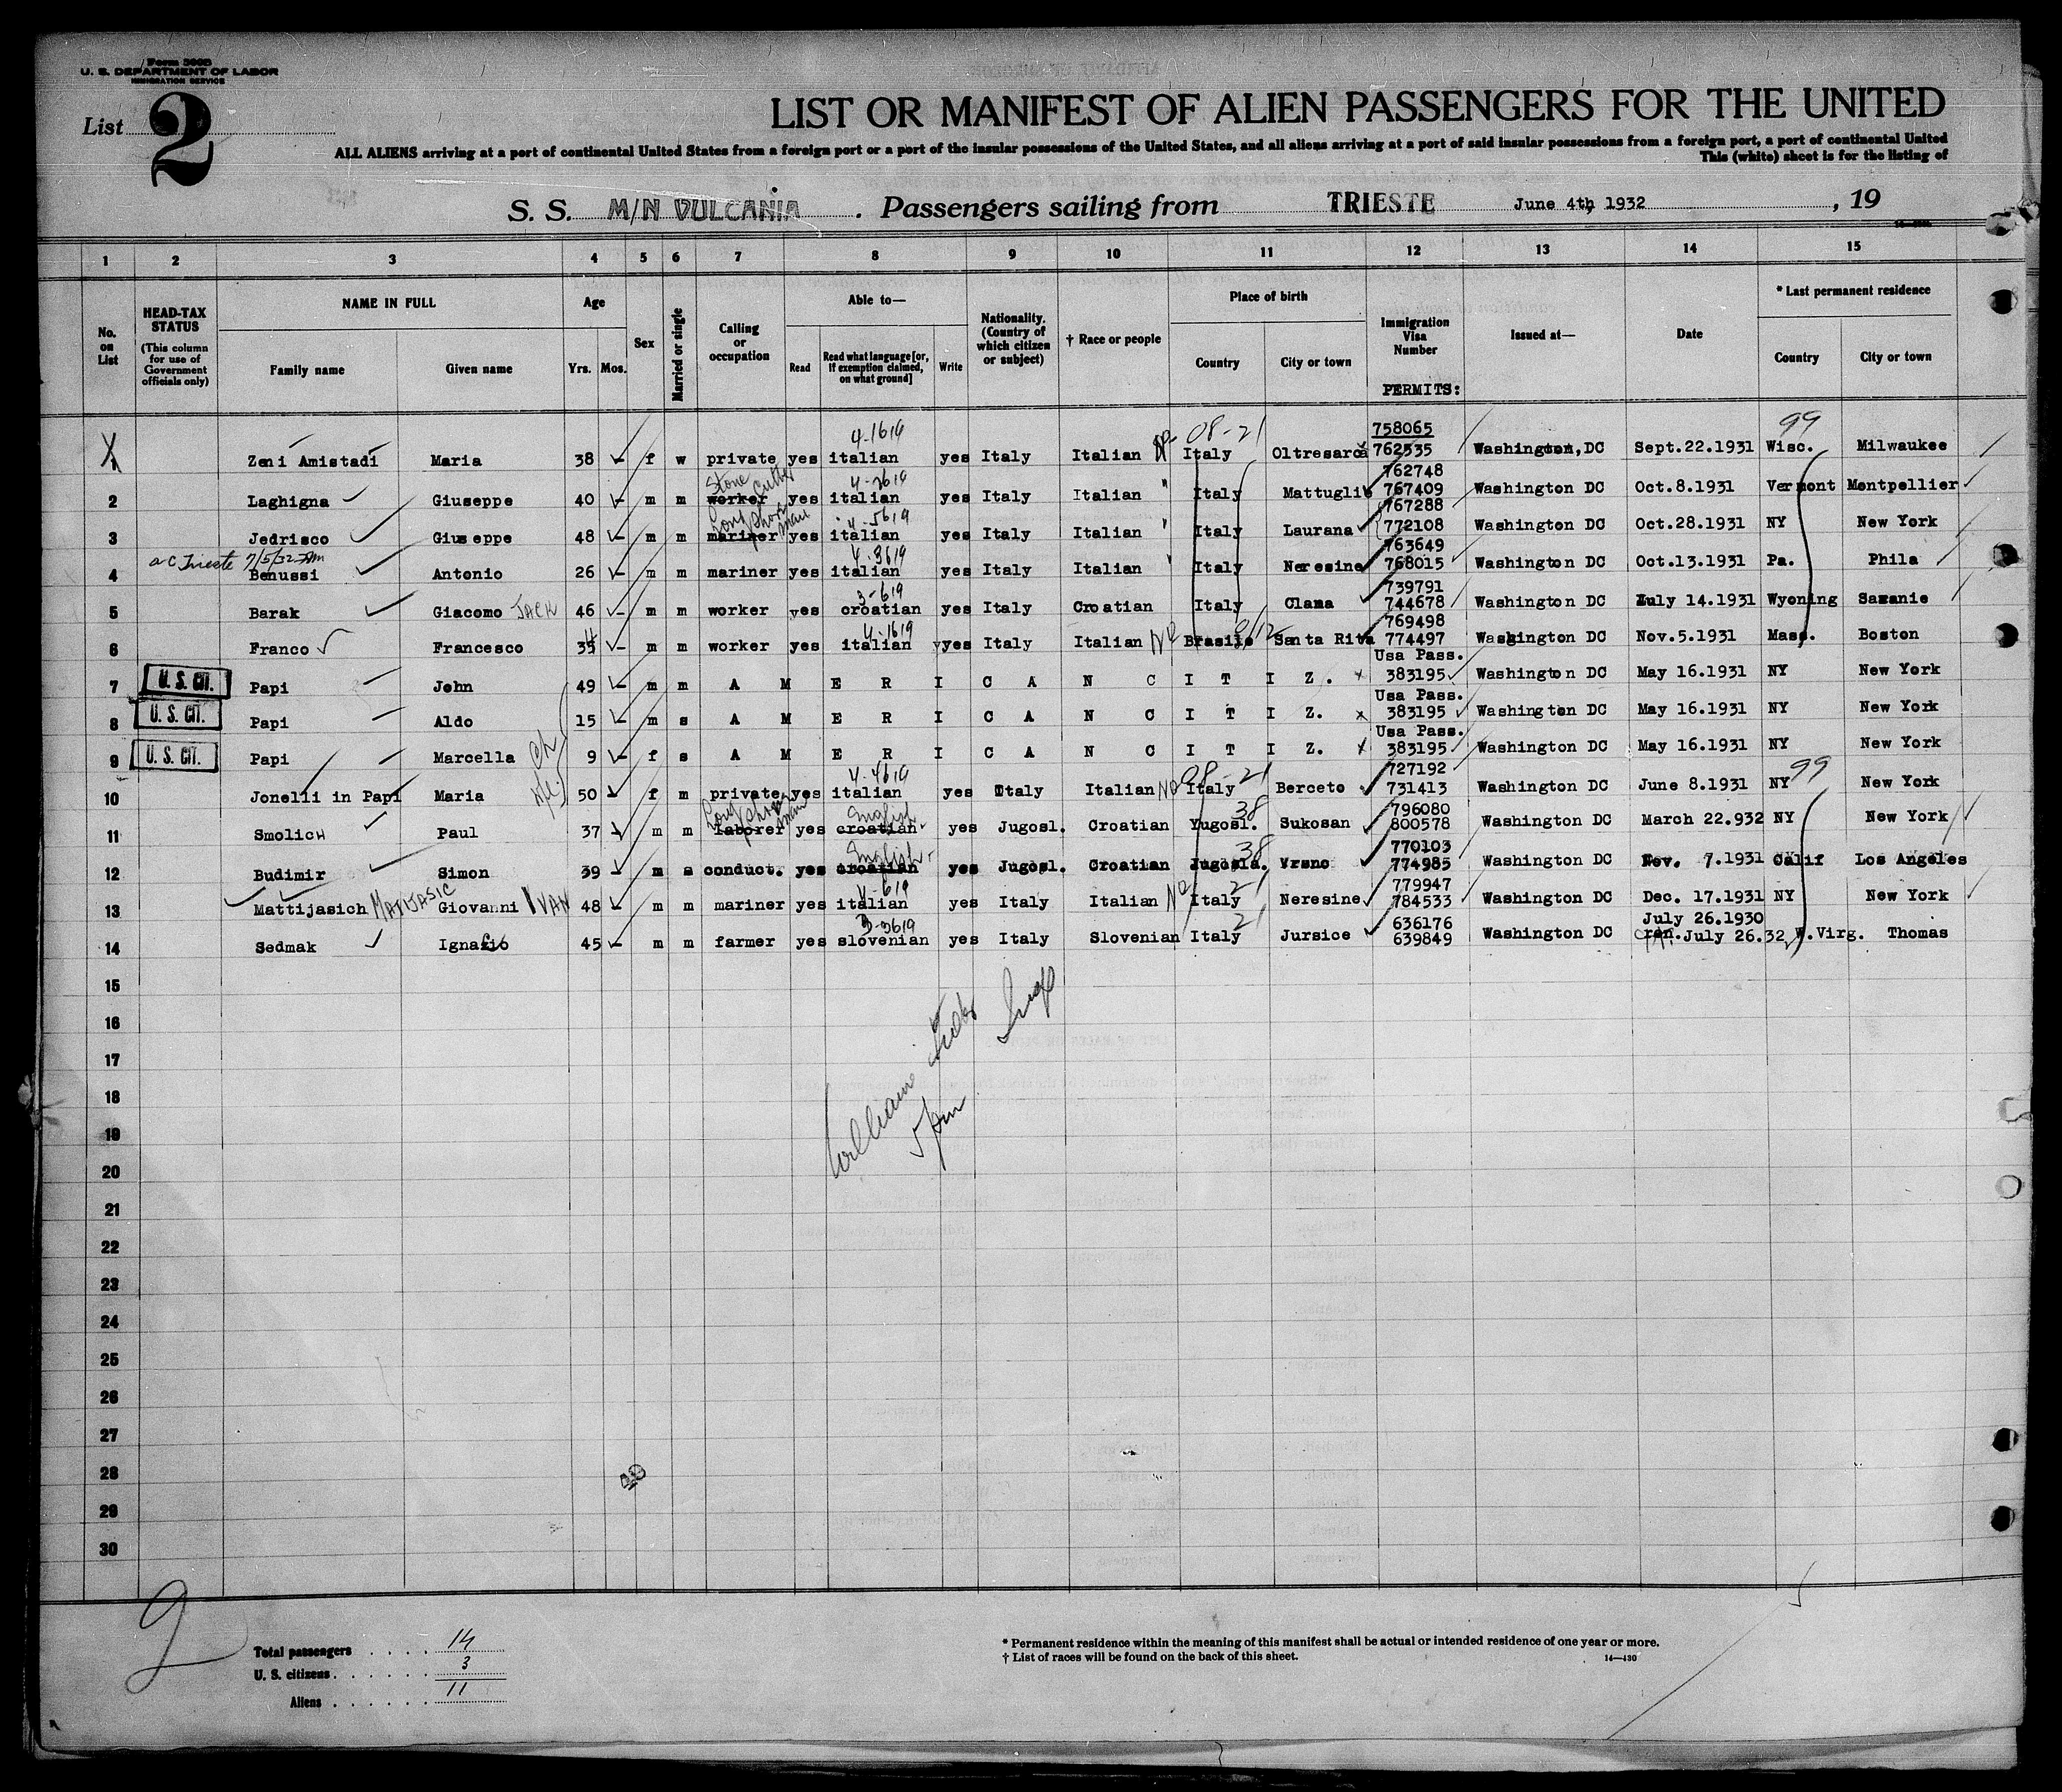 Form 500B
U. S. DEPARTMENT OF LABOR
IMMIGRATION SERVICE
List 2
LIST OR MANIFEST OF ALIEN PASSENGERS FOR THE UNITED
ALL ALIENS arriving at a port of continental United States from a foreign port or a port of the insular possessions of the United States, and all aliens arriving at a port of said insular possessions from a foreign port, a port of continental United
This (white) sheet is for the listing of
S. S. M/N VULCANIA . Passengers sailing from TRIESTE June 4th, 1932 , 19
1 2 3 4 5 6 7 8 9 10 11 12 13 14 15
No. on List
HEAD-TAX STATUS (This column for use of Government officials only)
NAME IN FULL Family name Given name
Age Yrs. Mos.
Sex
Married or single
Calling or occupation
Able to— Read Read what language [or, if exemption claimed, on what ground] Write
Nationality. (Country of which citizen or subject)
† Race or people
Place of birth Country City or town
Immigration Visa Number PERMITS:
Issued at—
Date
* Last permanent residence Country City or town
4-1619 08-21 758065 99
Zeni Amistadi Maria 38 f w private yes italian yes Italy Italian Italy Oltresarca 762535 Washington, DC Sept.22.1931 Wisc. Milwaukee
Stone Cutter 4-2619 762748
2 Laghigna Giuseppe 40 m m worker yes italian yes Italy Italian " Italy Mattuglie 767409 Washington DC Oct.8.1931 Vermont Montpellier
Long shore man 4-5619 767288
3 Jedrisco Giuseppe 48 m m mariner yes italian yes Italy Italian " Italy Laurana 772108 Washington DC Oct.28.1931 NY New York
a-c Trieste 7/5/32 4-3619 763649
4 Benussi Antonio 26 m m mariner yes italian yes Italy Italian " Italy Neresine 768015 Washington DC Oct.13.1931 Pa. Phila
3-619 739791
5 Barak Giacomo JACK 46 m m worker yes croatian yes Italy Croatian Italy Clana 744678 Washington DC July 14.1931 Wyoning
4-1619 769498
6 Franco Francesco m m worker yes italian yes Italy Italian No Brasile Santa Rita 774497 Washington DC Nov.5.1931 Mass. Boston
Usa Pass.
7 U. S. CIT. Papi John 49 m m A M E R I C A N C I T I Z. 383195 Washington DC May 16.1931 NY New York
Usa Pass.
8 U. S. CIT. Papi Aldo 15 m s A M E R I C A N C I T I Z. 383195 Washington DC May 16.1931 NY New York
Usa Pass.
9 U. S. CIT. Papi Marcella 9 f s A M E R I C A N C I T I Z. 383195 Washington DC May 16.1931 NY New York
4-4619 08-21 727192 99
10 Jonelli in Papi Maria 50 f m private yes italian yes Italy Italian No Italy Berceto 731413 Washington DC June 8.1931 NY New York
Long shore man English 38 796080
11 Smolich Paul 37 m m laborer yes croatian yes Jugosl. Croatian Yugosl. Sukosan 800578 Washington DC March 22.932 NY New York
English 38 770103
12 Budimir Simon 39 m s conduct. yes croatian yes Jugosl. Croatian Jugosla. Vrsno 774985 Washington DC Nov. 7.1931 Calif Los Angeles
4-619 21 779947
13 Mattijasich MATIJASIC Giovanni IVAN 48 m m mariner yes italian yes Italy Italian No Italy Neresine 784533 Washington DC Dec. 17.1931 NY New York
3-3619 21 636176 July 26.1930
14 Sedmak Ignazio 45 m m farmer yes slovenian yes Italy Slovenian Italy Jursice 639849 Washington DC ren. July 26.32 W.Virg. Thomas
15
16
17
18
19
20
21
22
23
24
25
26
27
28
29
30
William Insp
5 pm
2
Total passengers . . . . 14
U. S. citizens . . . . . . 3
Aliens . . . . . . 11
* Permanent residence within the meaning of this manifest shall be actual or intended residence of one year or more.
† List of races will be found on the back of this sheet. 14—430